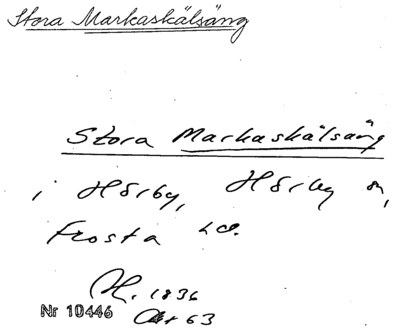 Stora Markaskälsäng
Stora Markaskälsäng
i Hörby, Hörby sn,
Frosta hd.
H. 1836
Akt 63
Nr 10446